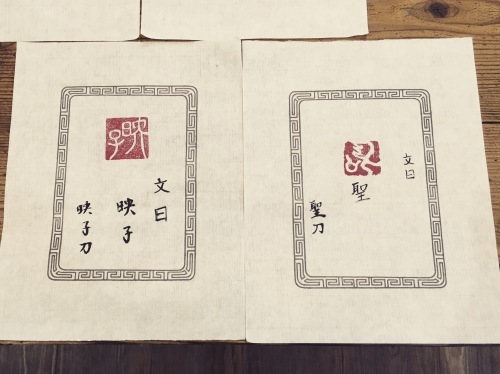 映子
文曰
映子
映子刀
文曰
聖
聖刀